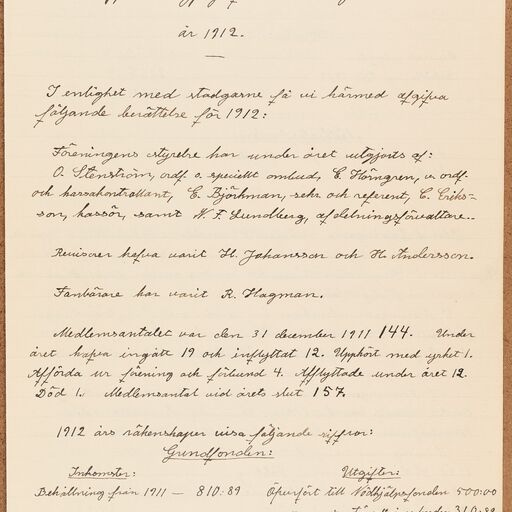 år 1912.
I enlighet med stadgarne få vi härmed afgifva
följande berättelse för 1912:
Föreningens styrelse har under året utgjorts af:
O. Stenström, ordf. o. speciellt ombud, E. Höngren, v. ordf.
och kassakontrollant, E. Björkman, sekr. och referent, C. Eriks-
son, kassör, samt N. F. Lundberg, afdelningsförvaltare..
Revisorer hafva varit H. Johansson och H. Andersson.
Fanbärare har varit R. Hagman.
Medlemsantalet var den 31 december 1911 144. Under
året hafva ingått 19 och inflyttat 12. Upphört med yrket 1.
Afförda ur förening och förbund 4. Afflyttade under året 12.
Död 1. Medlemsantal vid årets slut 157.
1912 års räkenskaper visa följande siffror:
Grundfonden:
Inkomster: Utgifter:
Behållning från 1911 — 810:89 Öfverfört till Nödhjälpsfonden 500:00
310:89